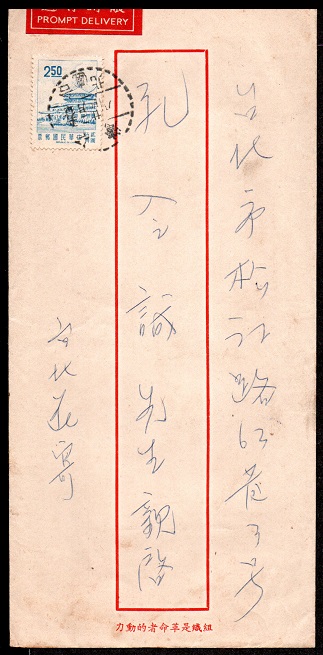 限時專送
PROMPT DELIVERY
2.50
中華民國郵票
台北市松江路63巷3号
孔令誠先生親啓
台北連寄
組織是革命者的動力